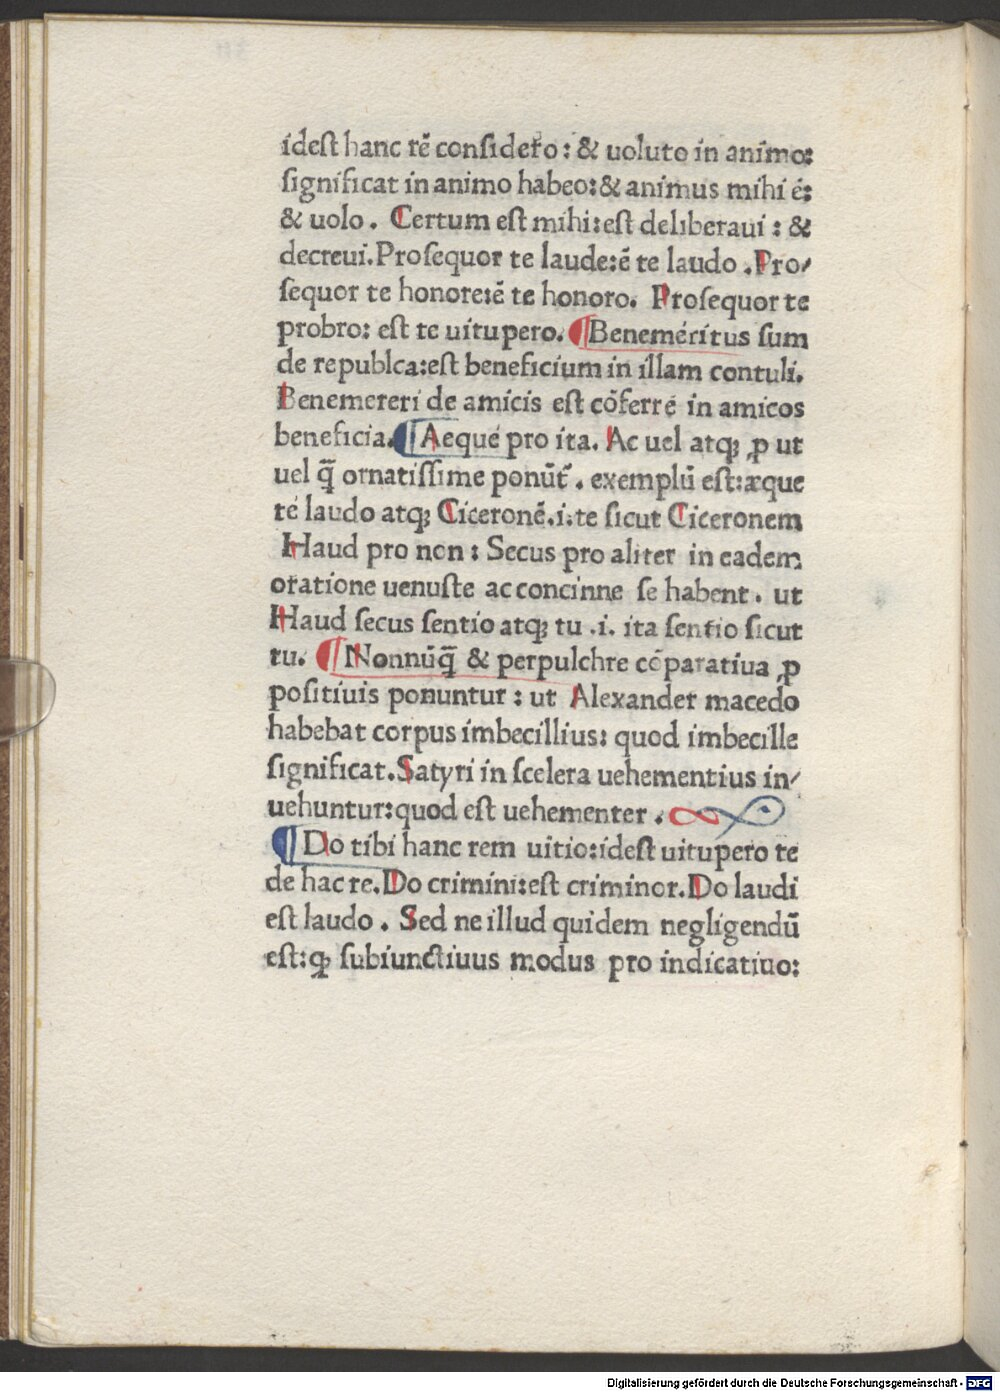 idest hanc rē considero: & uoluto in animo:
significat in animo habeo: & animus mihi ē:
& uolo. Certum est mihi: est deliberaui: &
decreui. Prosequor te laude: ē te laudo. Pro/
sequor te honore: ē te honoro. Prosequor te
probro: est te uitupero. ¶ Benemeritus sum
de republca: est beneficium in illam contuli.
Benemereri de amicis est cōferre in amicos
beneficia. ¶ Aeque pro ita. Ac uel atqꝫ ꝓ ut
uel q̄ ornatissime ponūt̄. exemplū est: æque
te laudo atqꝫ Ciceronē. i. te sicut Ciceronem
Haud pro non: Secus pro aliter in eadem
oratione uenuste ac concinne se habent. ut
Haud secus sentio atqꝫ tu .i. ita sentio sicut
tu. ¶ Nonnūq̄ & perpulchre cōparatiua ꝓ
positiuis ponuntur: ut Alexander macedo
habebat corpus imbecillius: quod imbecille
significat. Satyri in scelera uehementius in/
uehuntur: quod est uehementer.
¶ Do tibi hanc rem uitio: idest uitupero te
de hac re. Do crimini: est criminor. Do laudi
est laudo. Sed ne illud quidem negligendū
est: qꝫ subiunctiuus modus pro indicatiuo:
Digitalisierung gefördert durch die Deutsche Forschungsgemeinschaft - DFG